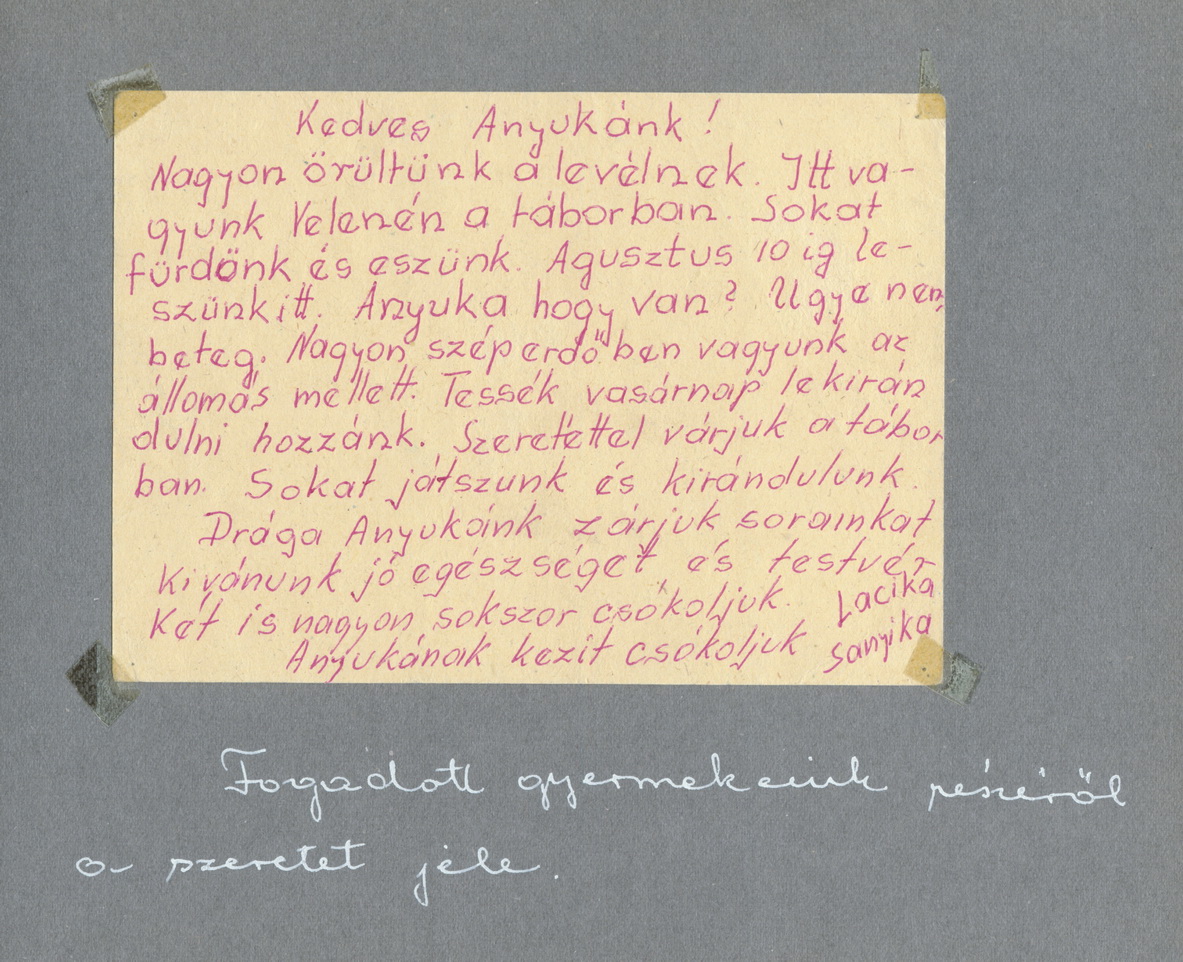 Kedves Anyukánk!
Nagyon örültünk a levélnek. Itt va-
gyunk Velenén a táborban. Sokat
fürdönk és eszünk. Agusztus 10 ig le-
szünk itt. Anyuka hogy van? Ugye nem
beteg. Nagyon szép erdő"ben vagyunk az
állomás mellett. Tessék vasárnap lekirán
dulni hozzánk. Szeretettel várjuk a tábor
ban. Sokat játszunk és kirándulunk.
Drága Anyukánk zárjuk sorainkat
kivánunk jó egészséget és testvér
két is nagyon sokszor csókoljuk. Lacika
Anyukának kezit csókoljuk Sanyika
Fogadott gyermekeink részéről
a szeretet jele.